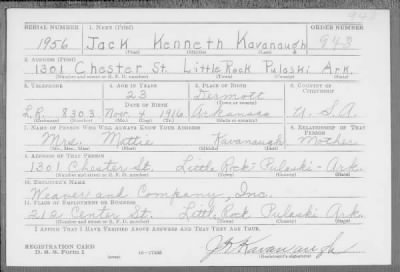 SERIAL NUMBER 1. NAME (Print) ORDER NUMBER
1956 Jack Kenneth Kavanaugh 943
(First) (Middle) (Last)
2. ADDRESS (Print)
1301 Chester St. Little Rock Pulaski Ark.
(Number and street or R. F. D. number) (Town) (County) (State)
3. TELEPHONE 4. AGE IN YEARS 5. PLACE OF BIRTH 6. COUNTRY OF CITIZENSHIP
23 Dermott
DATE OF BIRTH (Town or county)
L.R. 8303 Nov. 4 1916 Arkansas U.S.A.
(Exchange) (Number) (Mo.) (Day) (Yr.) (State or country)
7. NAME OF PERSON WHO WILL ALWAYS KNOW YOUR ADDRESS 8. RELATIONSHIP OF THAT PERSON
Mrs. Mattie Kavanaugh Mother
(Mr., Mrs., Miss) (First) (Middle) (Last)
9. ADDRESS OF THAT PERSON
1301 Chester St. Little Rock - Pulaski - Ark.
(Number and street or R. F. D. number) (Town) (County) (State)
10. EMPLOYER'S NAME
Weaver and Company, Inc.
11. PLACE OF EMPLOYMENT OR BUSINESS
212 Center St. Little Rock Pulaski Ark.
(Number and street or R. F. D. number) (Town) (County) (State)
I AFFIRM THAT I HAVE VERIFIED ABOVE ANSWERS AND THAT THEY ARE TRUE.
REGISTRATION CARD
D. S. S. Form 1 (over) J K Kavanaugh
(Registrant's signature)